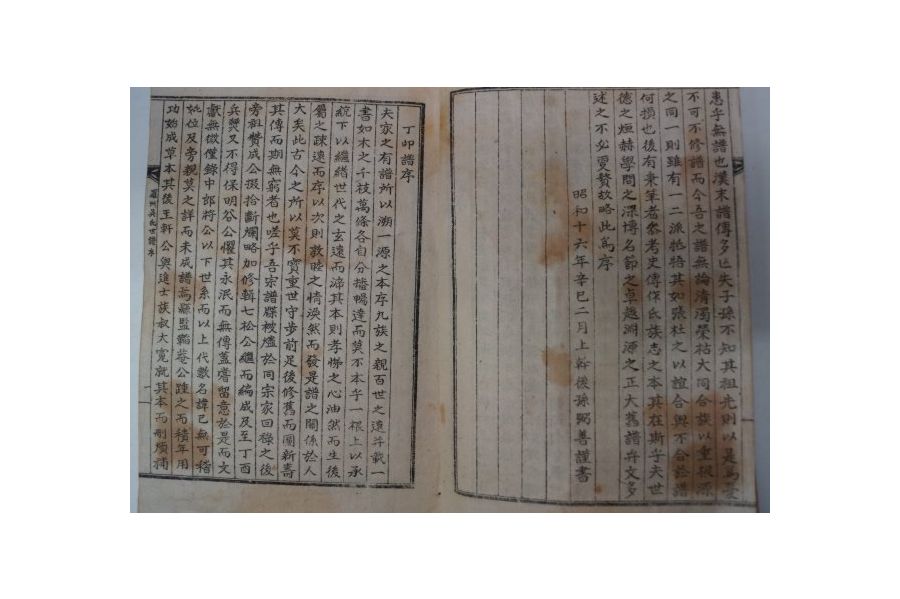 患乎無譜也漢末譜傳多亡失子孫不知其祖先則以是爲
不可不修譜而今吾之譜無論淸濁榮枯大同合族以重根源
之同一則雖有一二派牴牾其如張杜之以誼合與不合於譜
何損也後有秉筆者參考史傳保氏族志之本其在斯乎夫世
德之烜赫學問之深博名節之卓越淵源之正大舊譜弁文多
述之不必更贅故略此爲序
昭和十六年辛巳二月上澣後孫弼善謹書
丁卯譜序
夫家之有譜所以溯一源之本序九族之親百世之遠幷載一
書如木之千枝萬條各自分播暢達而莫不本乎一根上以承
統下以繼緖世代之玄遠而諦其本則孝悌之心油然而生後
屬之疎遠而序以次則敦睦之情渙然而發是譜之關係於人
大矣此古今之所以莫不寶重世守步前足後修舊而圖新壽
其傳而期無窮者也嗟乎吾宗譜牒被燼於同宗家回祿之後
旁祖贊成公掇拾斷爛略加修輯七松公繼而編成及至丁酉
兵燹又不得保明谷公懼其永泯而無傳蓋嘗留意於是而文
獻無徵僅錄中郞將公以下世系而以上代數名諱已無可稽
妣位及旁親莫之詳而未成譜焉縣監韜菴公踵之而積年用
功始成草本其後王軒公與進士族叔大寬就其本而刪煩補
羅州吳氏世譜序